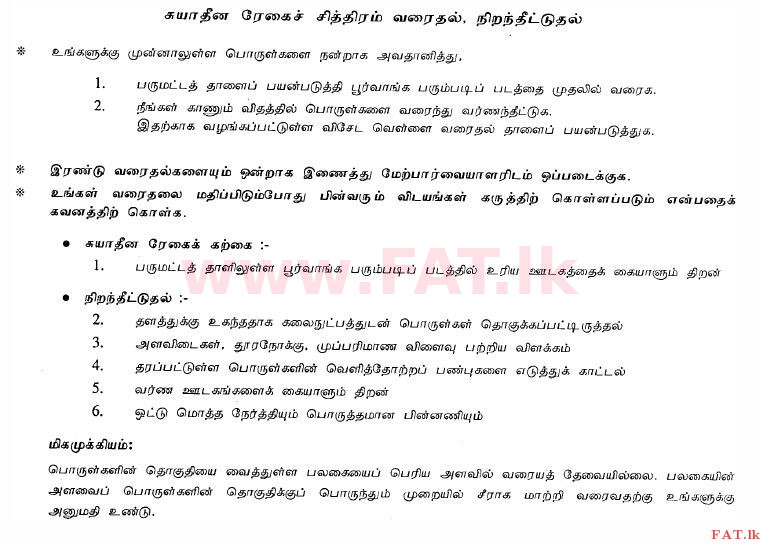 சுயாதீன ரேகைச் சித்திரம் வரைதல், நிறந்தீட்டுதல்
※ உங்களுக்கு முன்னாலுள்ள பொருள்களை நன்றாக அவதானித்து,
1. பருமட்டத் தாளைப் பயன்படுத்தி பூர்வாங்க பரும்படிப் படத்தை முதலில் வரைக.
2. நீங்கள் காணும் விதத்தில் பொருள்களை வரைந்து வர்ணந்தீட்டுக.
இதற்காக வழங்கப்பட்டுள்ள விசேட வெள்ளை வரைதல் தாளைப் பயன்படுத்துக.
※ இரண்டு வரைதல்களையும் ஒன்றாக இணைத்து மேற்பார்வையாளரிடம் ஒப்படைக்குக.
※ உங்கள் வரைதலை மதிப்பிடும்போது பின்வரும் விடயங்கள் கருத்திற் கொள்ளப்படும் என்பதைக்
கவனத்திற் கொள்க.
● சுயாதீன ரேகைக் கற்கை :-
1. பருமட்டத் தாளிலுள்ள பூர்வாங்க பரும்படிப் படத்தில் உரிய ஊடகத்தைக் கையாளும் திறன்
www.FAT.lk
● நிறந்தீட்டுதல் :-
2. தளத்துக்கு உகந்ததாக கலைநுட்பத்துடன் பொருள்கள் தொகுக்கப்பட்டிருத்தல்
3. அளவிடைகள், தூரநோக்கு, முப்பரிமாண விளைவு பற்றிய விளக்கம்
4. தரப்பட்டுள்ள பொருள்களின் வெளித்தோற்றப் பண்புகளை எடுத்துக் காட்டல்
5. வர்ண ஊடகங்களைக் கையாளும் திறன்
6. ஒட்டு மொத்த நேர்த்தியும் பொருத்தமான பின்னணியும்
மிகமுக்கியம்:
பொருள்களின் தொகுதியை வைத்துள்ள பலகையைப் பெரிய அளவில் வரையத் தேவையில்லை. பலகையின்
அளவைப் பொருள்களின் தொகுதிக்குப் பொருந்தும் முறையில் சீராக மாற்றி வரைவதற்கு உங்களுக்கு
அனுமதி உண்டு.
FAT.lk